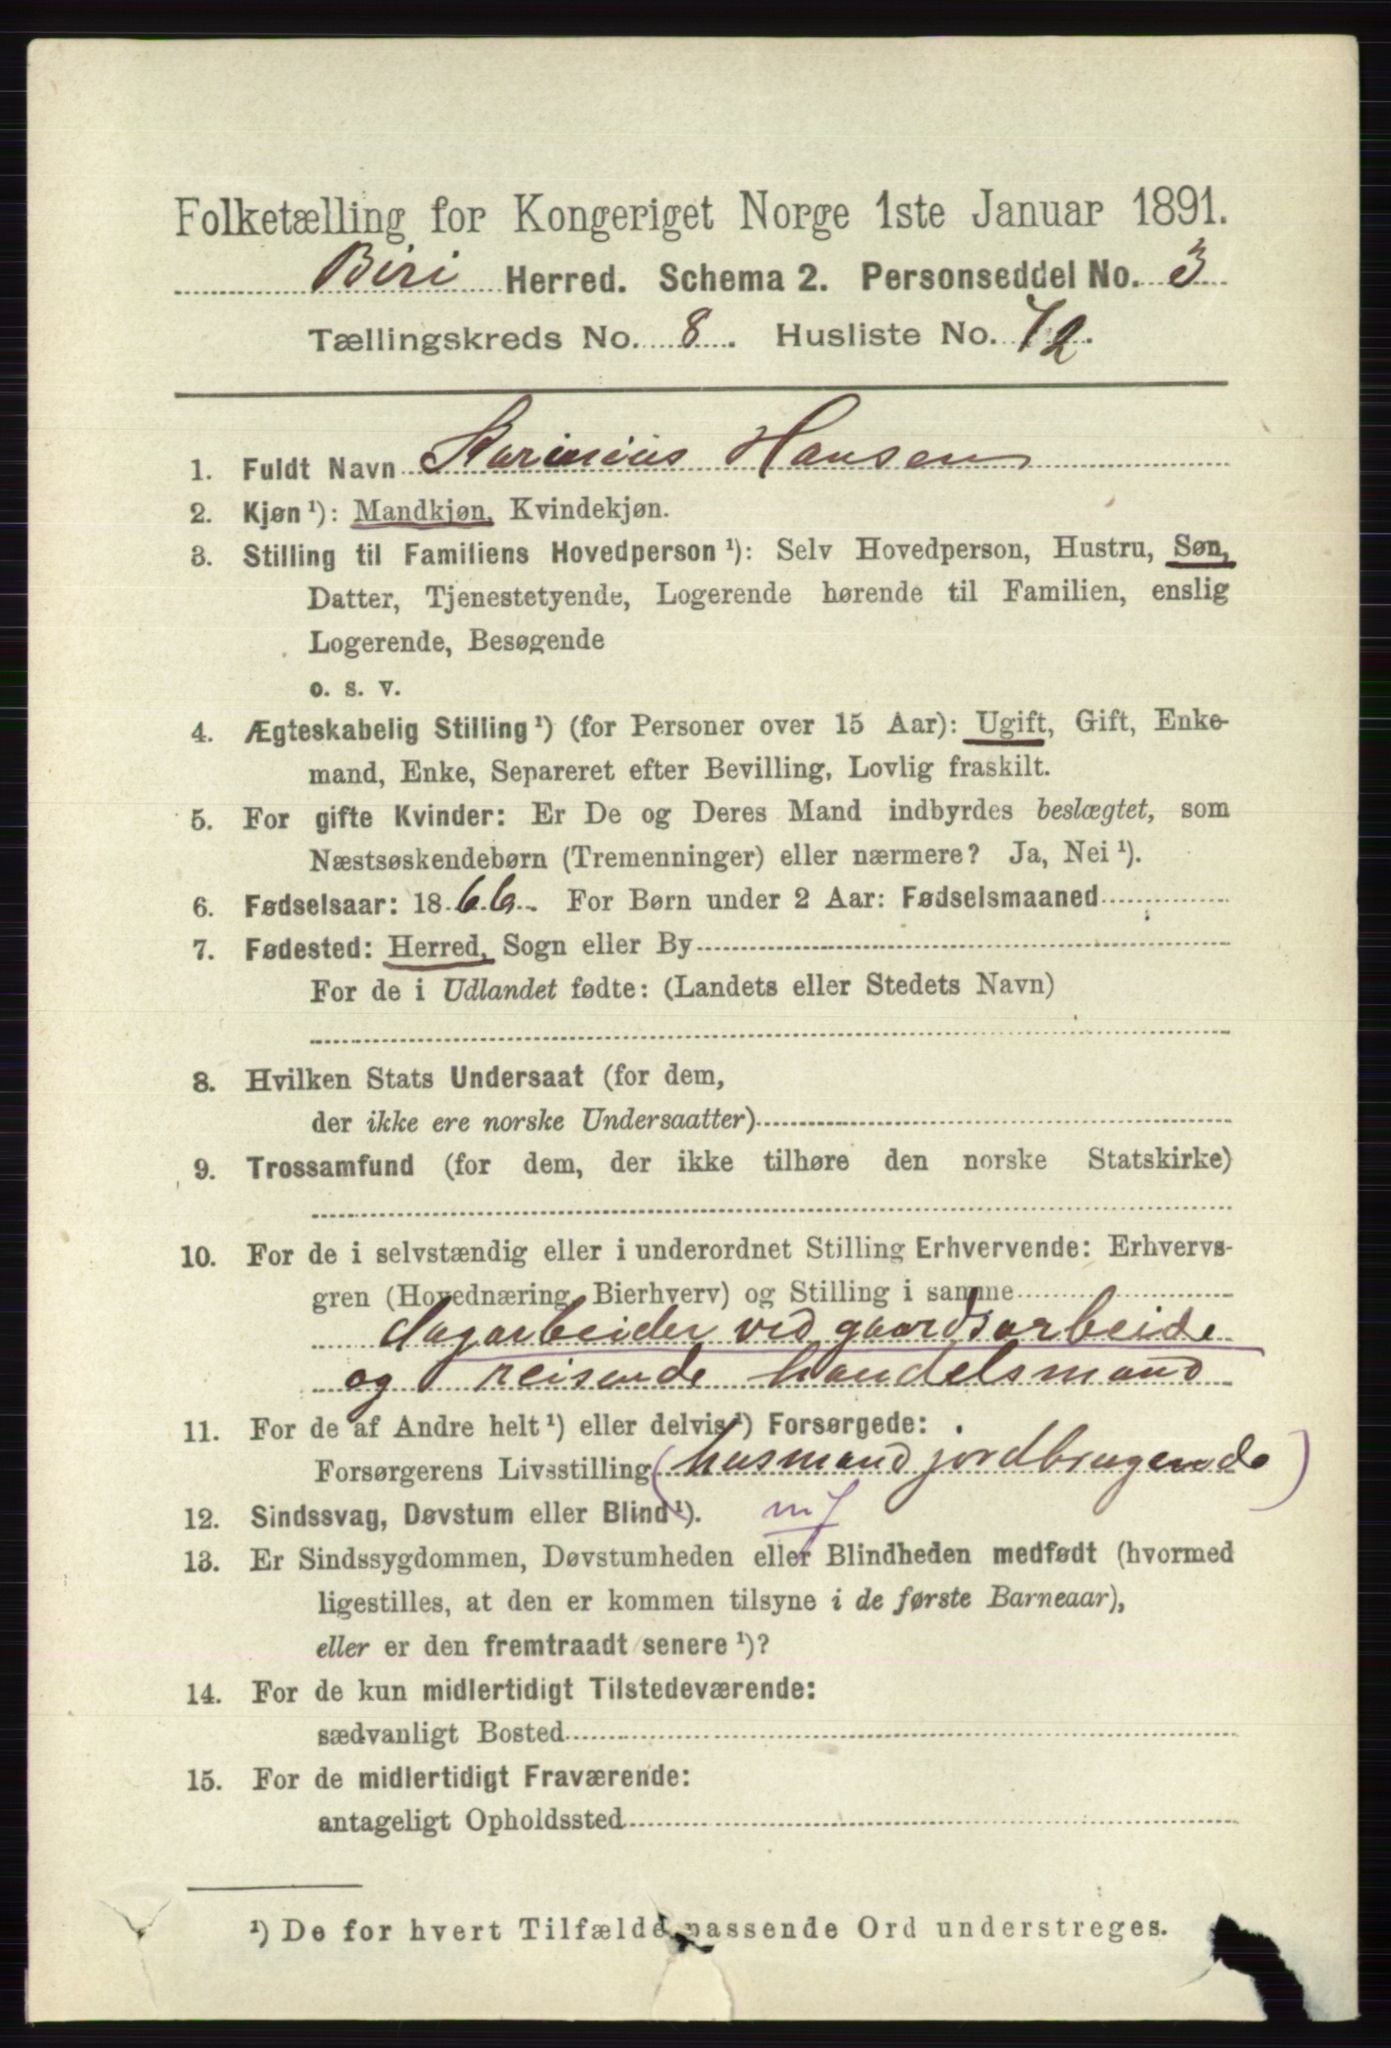 Folketælling for Kongeriget Norge 1ste Januar 1891.
Biri Herred. Schema 2. Personseddel No. 3
Tællingskreds No. 8. Husliste No. 72.
1. Fuldt Navn Karinius Hansen
2. Kjøn¹): Mandkjøn, Kvindekjøn.
3. Stilling til Familiens Hovedperson¹): Selv Hovedperson, Hustru, Søn,
Datter, Tjenestetyende, Logerende hørende til Familien, enslig
Logerende, Besøgende
o. s. v.
4. Ægteskabelig Stilling¹) (for Personer over 15 Aar): Ugift, Gift, Enke-
mand, Enke, Separeret efter Bevilling, Lovlig fraskilt.
5. For gifte Kvinder: Er De og Deres Mand indbyrdes beslægtet, som
Næstsøskendebørn (Tremenninger) eller nærmere? Ja, Nei¹).
6. Fødselsaar: 1866. For Børn under 2 Aar: Fødselsmaaned
7. Fødested: Herred, Sogn eller By
For de i Udlandet fødte: (Landets eller Stedets Navn)
8. Hvilken Stats Undersaat (for dem,
der ikke ere norske Undersaatter)
9. Trossamfund (for dem, der ikke tilhøre den norske Statskirke)
10. For de i selvstændig eller i underordnet Stilling Erhvervende: Erhvervs-
gren (Hovednæring, Bierhverv) og Stilling i samme
dagarbeider ved gaardsarbeide
og reisende handelsmand
11. For de af Andre helt¹) eller delvis¹) Forsørgede:
Forsørgerens Livsstilling (husmand jordbrugende)
12. Sindssvag, Døvstum eller Blind¹).
13. Er Sindssygdommen, Døvstumheden eller Blindheden medfødt (hvormed
ligestilles, at den er kommen tilsyne i de første Barneaar),
eller er den fremtraadt senere¹)?
14. For de kun midlertidigt Tilstedeværende:
sædvanligt Bosted
15. For de midlertidigt Fraværende:
antageligt Opholdssted
¹) De for hvert Tilfælde passende Ord understreges.